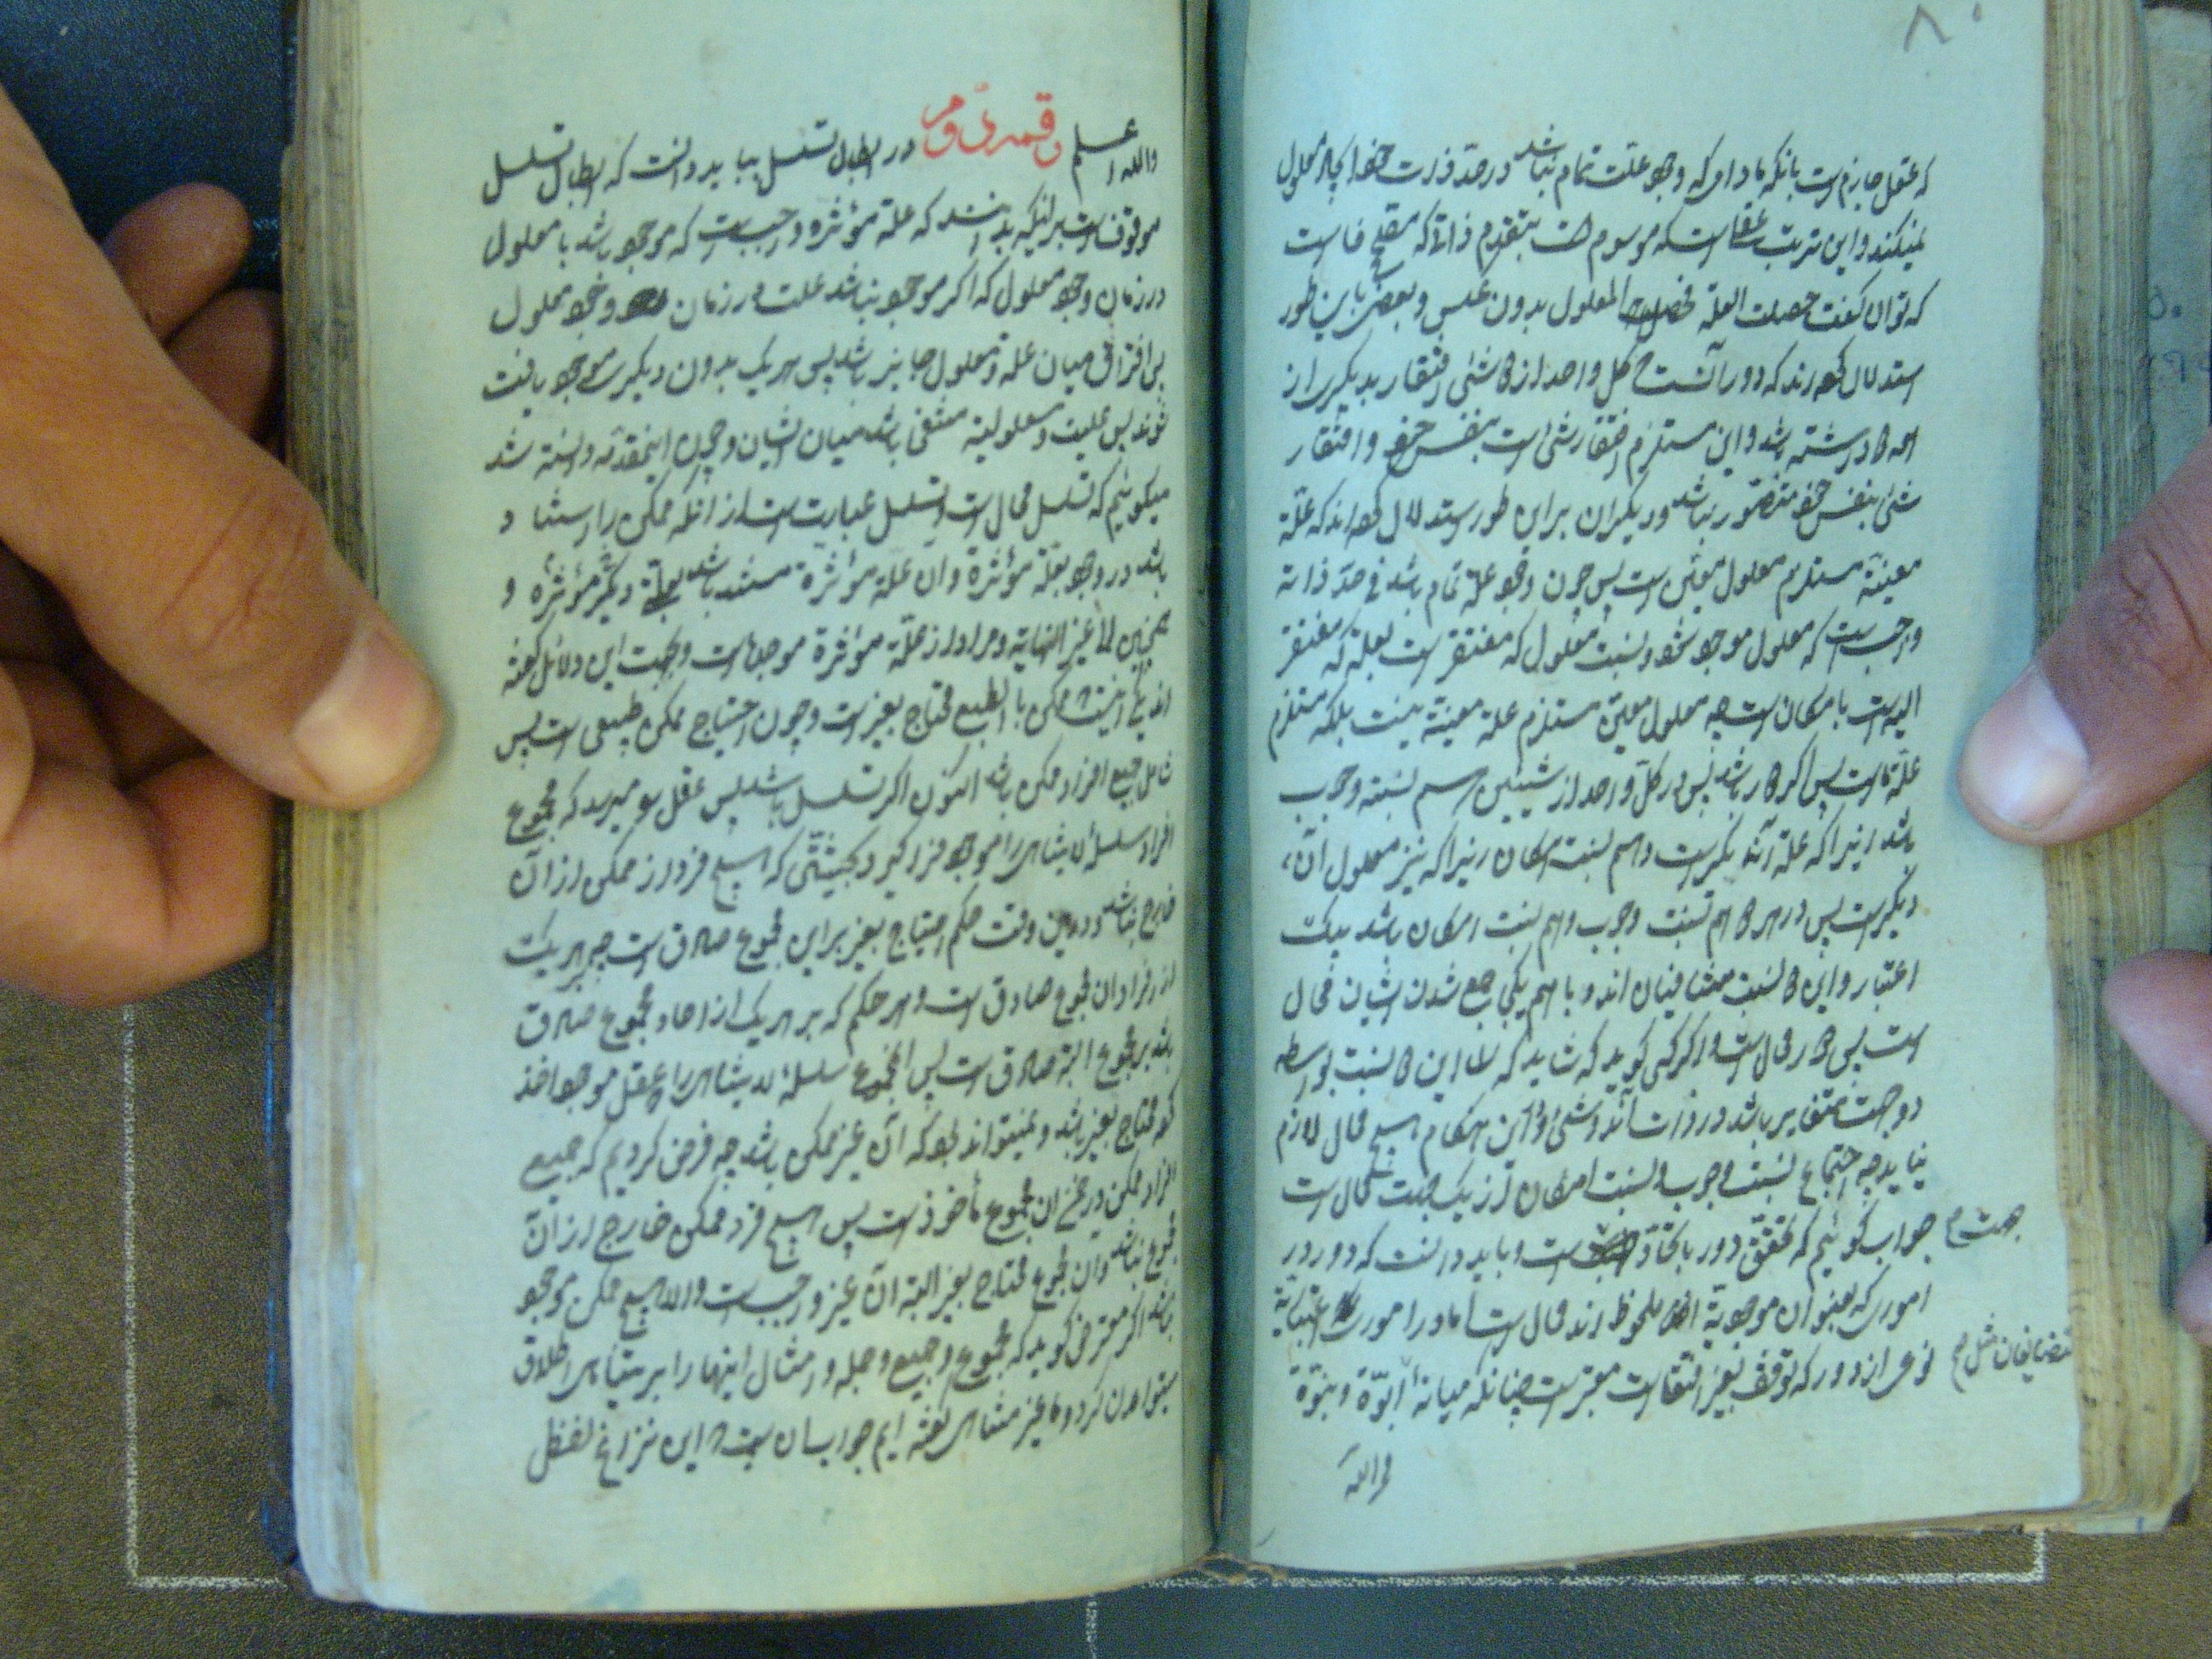 ۸۰
که عقل جازم است بآنکه مادام که وجود علت تمام نباشد در حد ذات خود ایجاد معلول
نمیکند و این ترتیب عقلی است که موسوم است بتقدم ذاتی که مصحح فاست
که توان گفت حصلت العلة فحصل المعلول بدون عکس و بعضی باین طور
استدلال کرده‌اند که دور آنست که کل واحد از دو شئ افتقار بدیگری از
داشته باشد و این مستلزم افتقار شئ است بنفس خود و افتقار
شئ بنفس خود متصور نباشد و دیگران بر این طور استدلال کرده‌اند که علة
معینة مستلزم معلول معین است پس چون وجود علة تمام باشد فی حد ذاته
واجب است که معلول موجود شود و نسبت معلول که مفتقر است بعلة که مفتقر
الیه است بامکان است چه معلول معین مستلزم علة معینة نیست بلکه مستلزم
علة ما است پس اگر دور باشد پس در کل واحد از شیئین هم نسبة وجوب
باشد زیرا که علة آن دیگر است و هم نسبت امکان زیرا که نیز معلول آن
دیگر است پس در هر دو هم نسبت وجوب و هم نسبت امکان باشد بیک
اعتبار و این دو نسبت متنافیان اند و با هم یکجا جمع شدن ایشان محال
است پس دور محال است و اگر کسی گوید که شاید که این دو نسبت بواسطه
دو جهت متغایر باشد در ذات آن دو شئ و این هنگام هیچ محال لازم
نیاید چه اجتماع نسبت وجوب و نسبت امکان از یک جهت محال است
جواب گوئیم که تحقق دور باتحاد جهت است و باید دانست که دور در
اموری که بعنوان موجودیة ملحوظ اند محال است اما در امور اعتباریة
نوعی از دور که توقف بغیر افتقار است معتبر است چنانکه میانه ابوّة و بنوّة
جهت
متضایفان مثل
والله
والله اعلم در ابطال تسلسل بباید دانست که ابطال تسلسل
موقوف است بر اینکه بدانند که علة مؤثره واجب است که موجود باشد با معلول
در زمان وجود معلول که اگر موجود نباشد علت در زمان وجود معلول
پس افتراق میان علة و معلول جایز باشد پس هر یک بدون دیگری موجود یافت
شوند پس علیت و معلولیة منتفی باشد میان ایشان و چون این مقدمه دانسته شد
میگوئیم که تسلسل محال است و تسلسل عبارت است از آنکه ممکن را استناد
باشد در وجود بعلة مؤثرة و آن علة مؤثرة مستند باشد بعلة دیگر مؤثره و
همچنین الی غیر النهایة و مراد از علة مؤثرة موجد است و بجهت این دلائل گفته
اند یکی اینست که ممکن بالطبع محتاج بغیر است و چون احتیاج ممکن طبیعی است پس
شامل جمیع افراد ممکن باشد اکنون اگر تسلسل باشد پس عقل میرسد که مجموع
افراد سلسلۀ لا یتناهی را موجود فرا گیرد بحیثیتی که هیچ فرد از ممکن از آن
خارج نباشد و در این وقت حکم احتیاج بغیر بر این مجموع صادق است چه بر هر یک
از افراد آن مجموع صادق است و هر حکم که بر هر یک از آحاد مجموع صادق
باشد بر مجموع البته صادق است پس مجموع سلسلۀ لا یتناهی را عقل موجود اخذ
کرد محتاج بغیر باشد و نمیتواند بود که آن غیر ممکن باشد چه فرض کردیم که جمیع
افراد ممکن در ضمن آن مجموع مأخوذ است پس هیچ فرد ممکن خارج از آن
مجموع نباشد و آن مجموع محتاج بغیر البته آن غیر واجب است والا هیچ ممکن موجود
نباشد اگر معترض گوید که مجموع و جمیع و جمله و امثال اینها را بر متناهی اطلاق
میتوان کرد و ما غیر متناهی گفته ایم جواب آن است که این نزاع لفظی